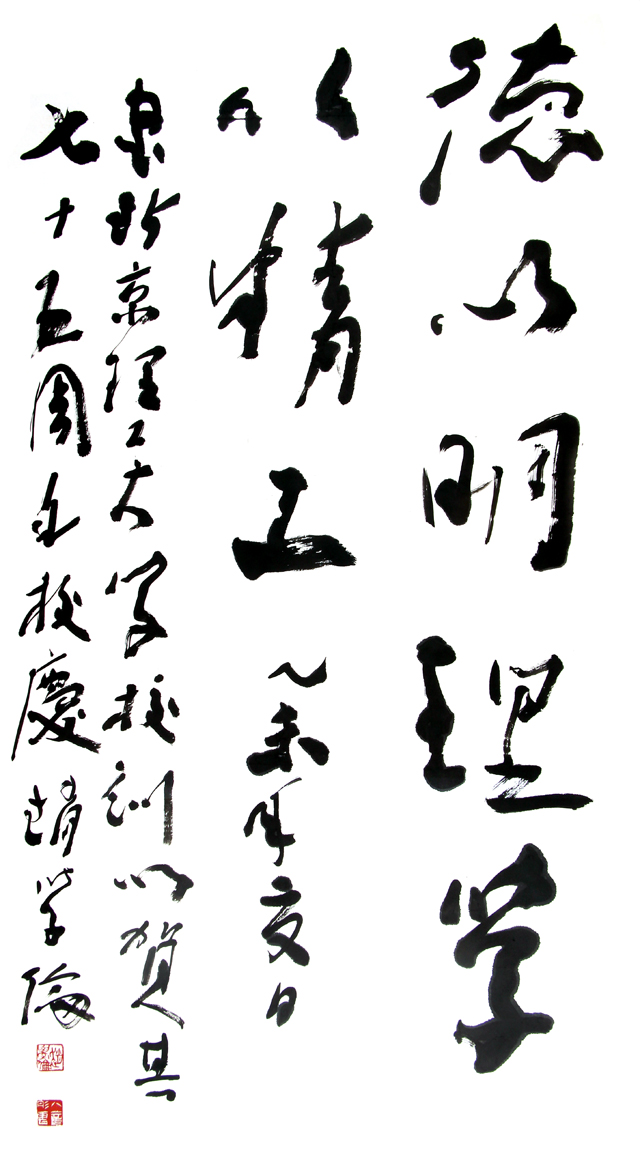 德以明理学
以精工 乙未年夏日
录北京理工大学校训以賀其
七十五周年校慶 趙学倫